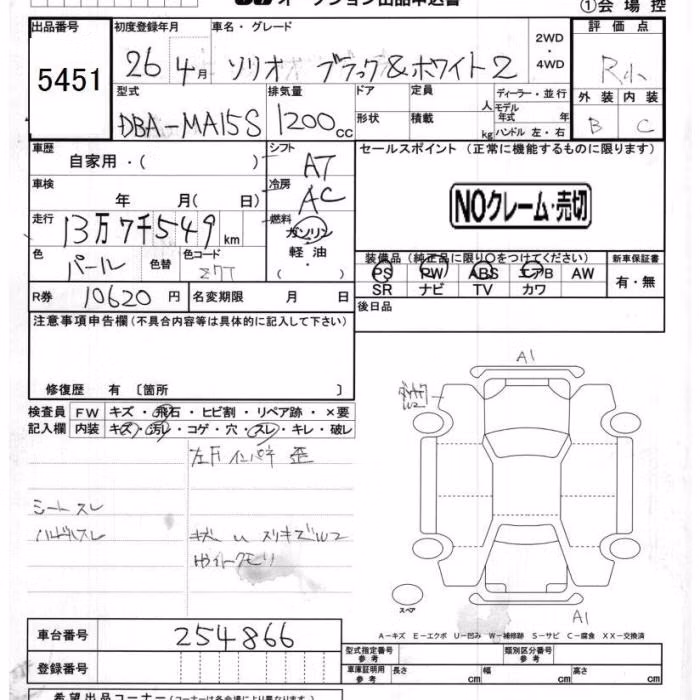 オークション出品申込書
①会場控
出品番号
5451
初度登録年月
26 4月
車名・グレード
ソリオ ブラック&ホワイト2
2WD
・
4WD
評価点
R小
外装 内装
B C
型式
DBA-MA15S
排気量
1200cc
ドア
形状
定員
人
積載
kg
ディーラー・並行
モデル年式 年
ハンドル 左・右
車歴
自家用・( )
シフト
AT
車検
年 月( 日)
冷房
AC
走行
13万7千549km
燃料
ガソリン
軽油
・( )
色
パール
色替
色コード
Z7T
R券
10620円
名変期限 月 日
セールスポイント(正常に機能するものに限ります)
NOクレーム・売切
装備品(純正品に限り○をつけてください)
PS RW ABS エアB AW
SR ナビ TV カワ
新車保証書
有・無
後日品
注意事項申告欄(不具合内容等は具体的に記入して下さい)
修復歴 有〔箇所 〕
検査員
記入欄
FW キズ・飛石・ヒビ割・リペア跡・×要
内装 キズ・汚レ・コゲ・穴・スレ・キレ・破レ
左Fインパネ 歪
シートスレ
ハンドルスレ
キズ U スリキズW2
A1
W2
A1
スペア
A-キズ E-エクボ U-凹み W-補修跡 S-サビ C-腐食 XX-交換済
車台番号
254866
登録番号
型式指定番号
参考
類別区分番号
参考
車庫証明用
参考
長さ cm 幅 cm 高さ cm
希望出品コーナー(コーナーは各会場により異なります。)